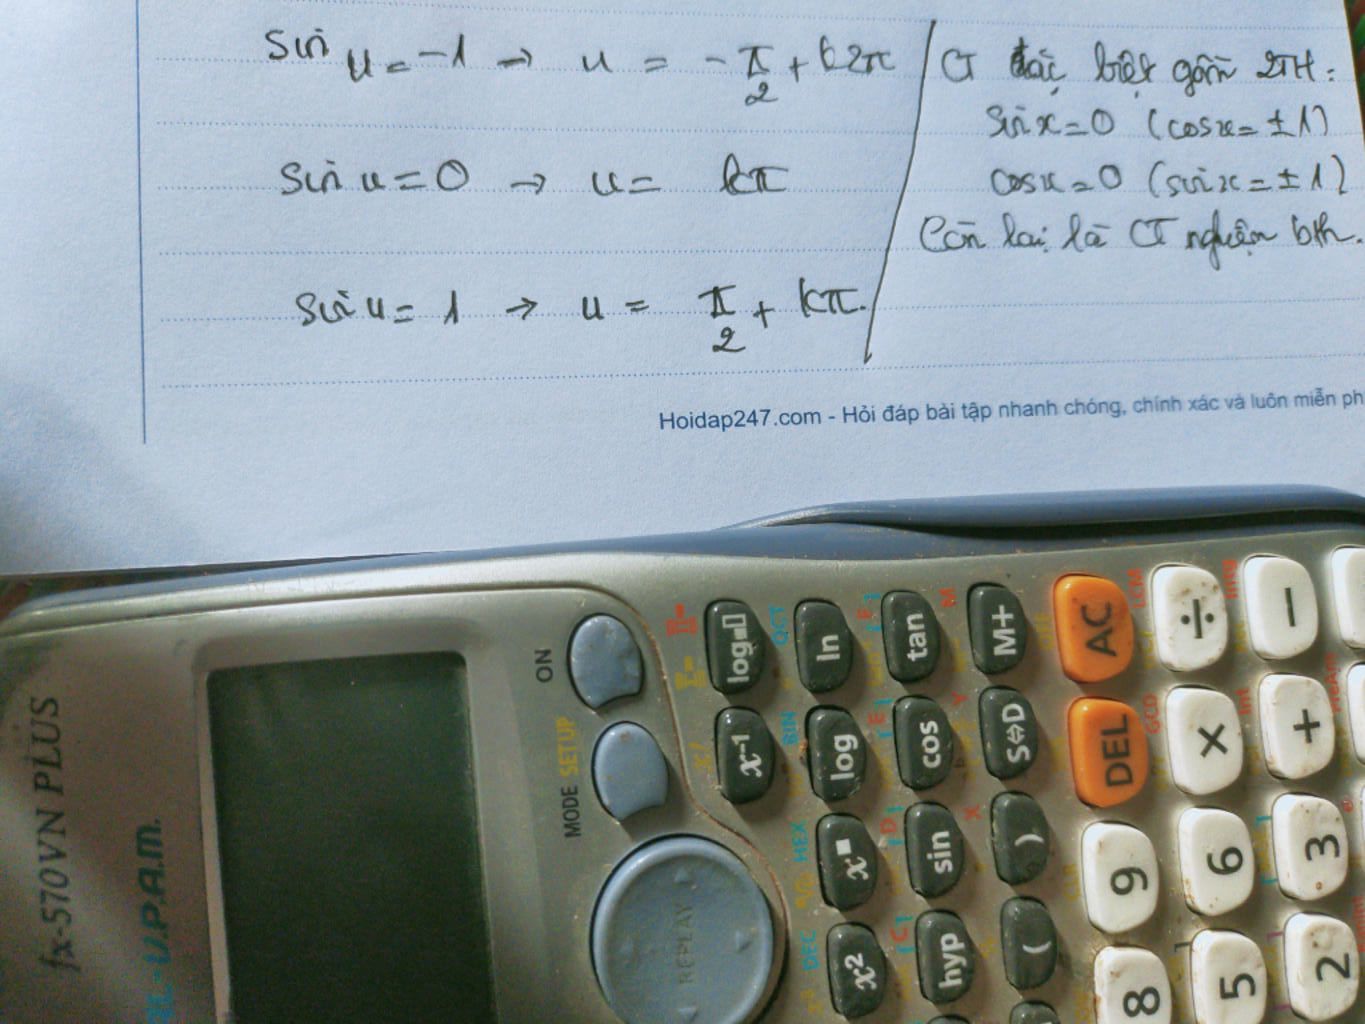 sin u = -1 → u = -π/2 + k2π
sin u = 0 → u = kπ
sin u = 1 → u = π/2 + kπ.
CT đặc biệt gồm 2TH:
sin x = 0 (cos x = ±1)
cos x = 0 (sin x = ±1)
Còn lại là CT nghiệm bth.
Hoidap247.com - Hỏi đáp bài tập nhanh chóng, chính xác và luôn miễn ph
fx-570VN PLUS
V.P.A.M.
ON
MODE SETUP
REPLAY
log
ln
tan
M+
AC
÷
−
x⁻¹
log
cos
S⇔D
DEL
×
+
x■
sin
)
9
6
3
x²
hyp
(
8
5
2